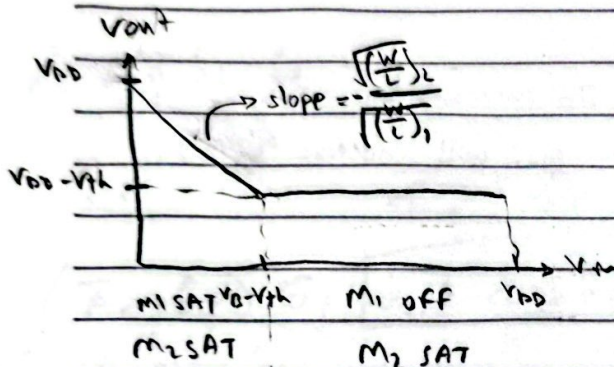 Vout
VDD
slope = - √(W/L)2 / √(W/L)1
VDD-Vth
Vin
M1 SAT VB-Vth M1 OFF VDD
M2 SAT M2 SAT